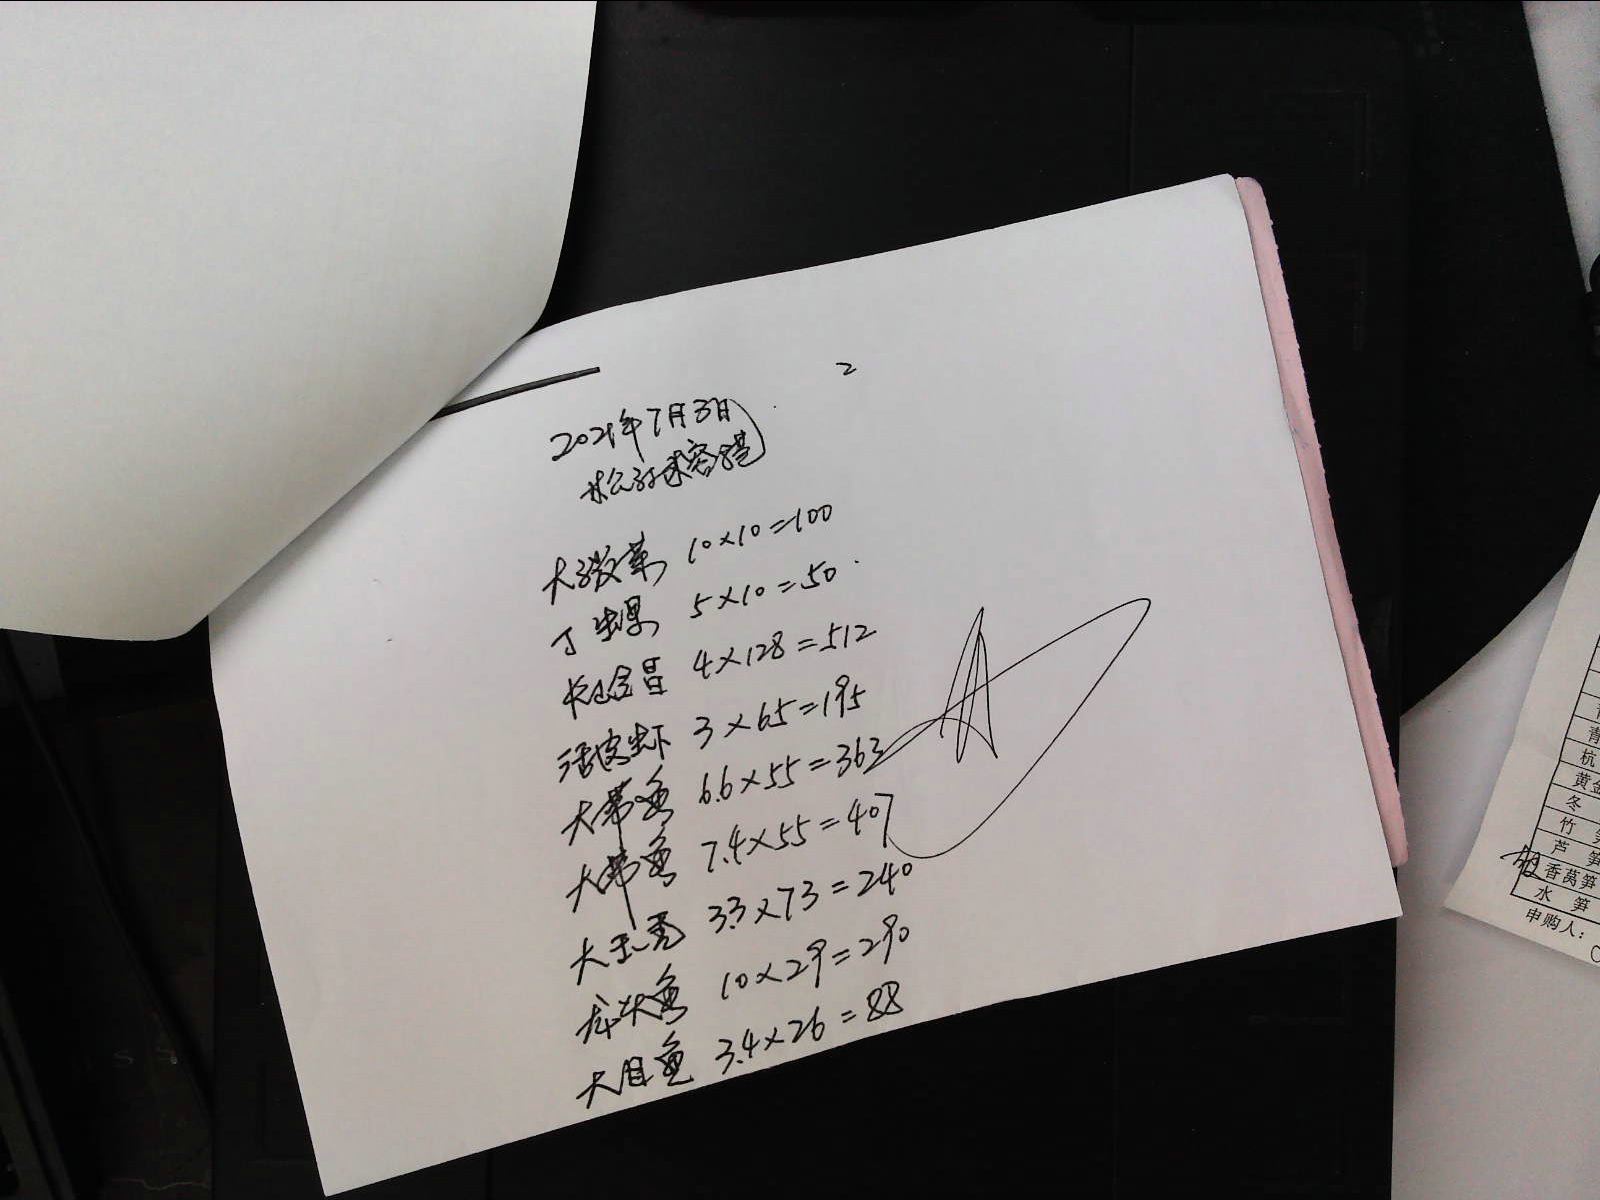 2
2021年7月3日
大 10×10=100
5×10=50
4×128=512
活皮虾 3×65=195
大带鱼 6.6×55=363
大带鱼 7.4×55=407
大玉秃 3.3×73=240
龙头鱼 10×29=290
大目鱼 3.4×26=88
青
杭
黄金
冬
竹 笋
芦 笋
香莴笋
水 笋
申购人: